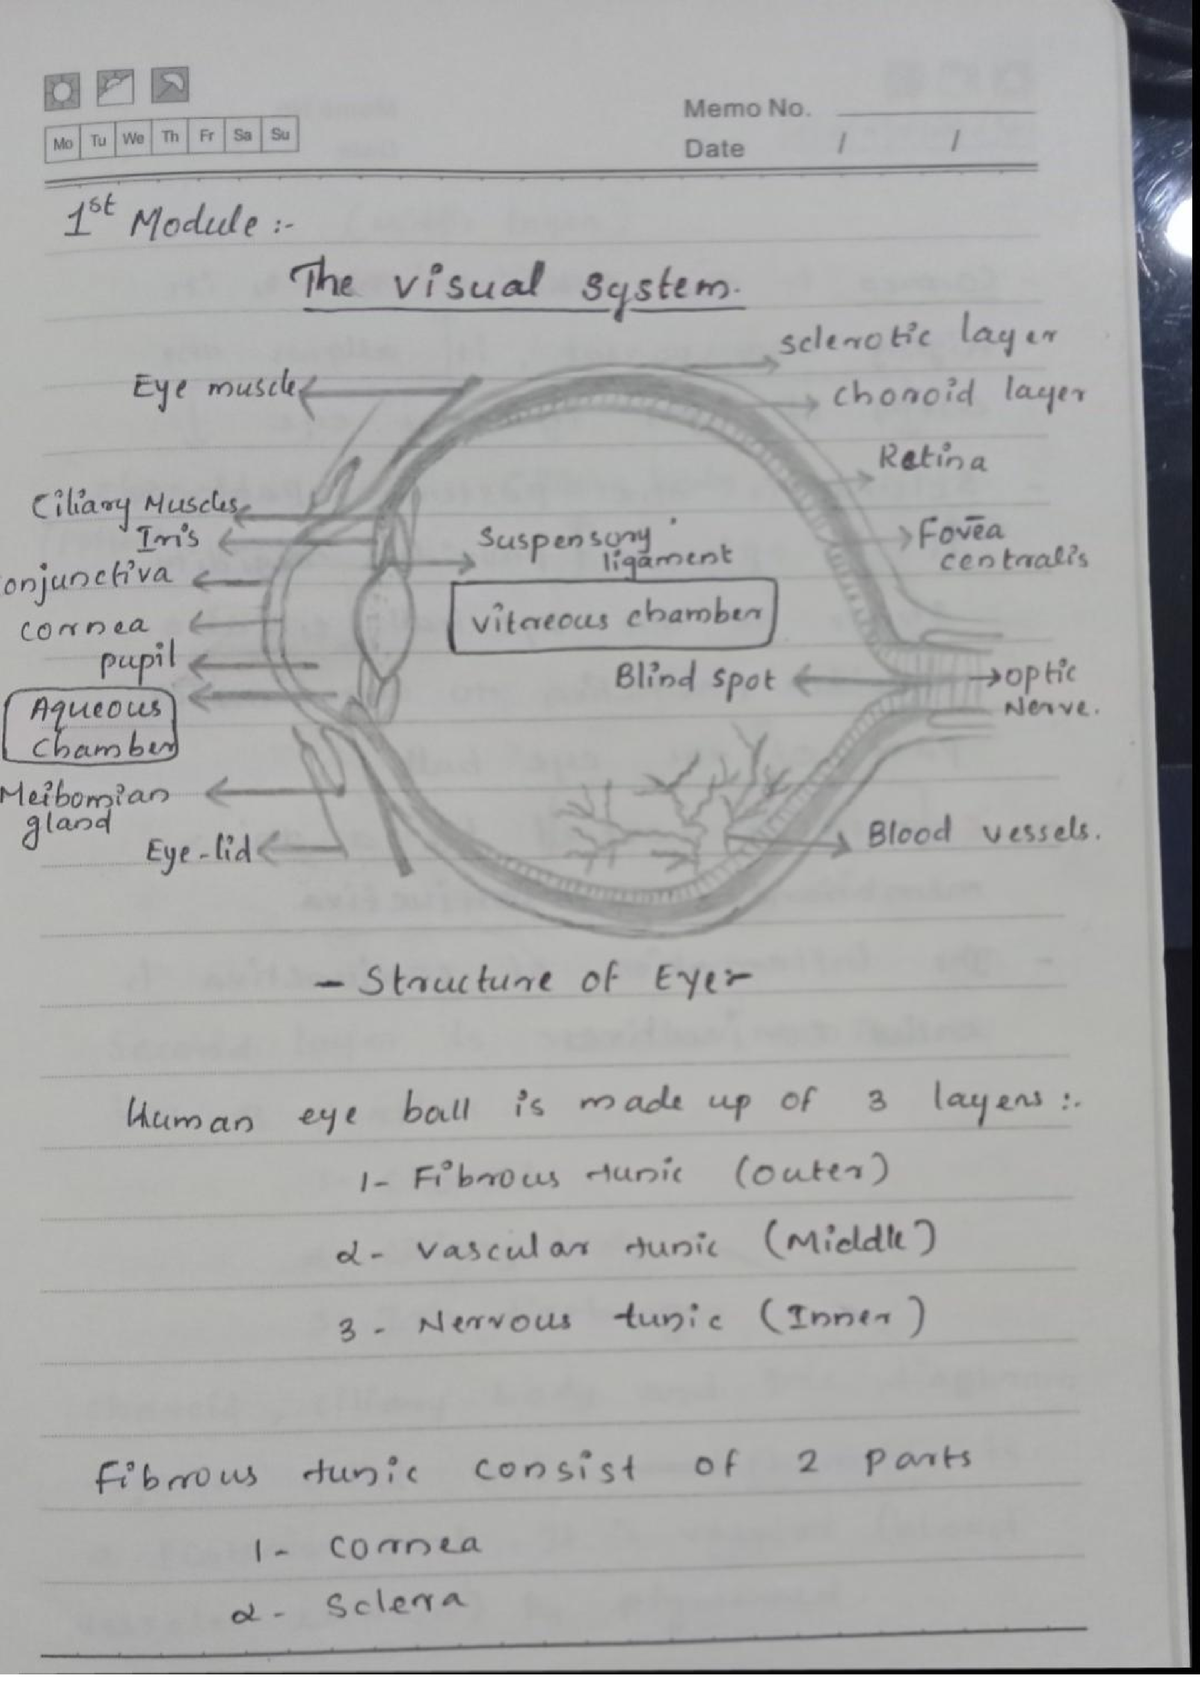 Memo No.
Mo Tu We Th Fr Sa Su
Date / /
1st Module :-
The visual system.
sclerotic layer
Eye muscle
choroid layer
Retina
Ciliary Muscles
Iris
Suspensory
ligament
Fovea
centralis
onjunctiva
vitreous chamber
cornea
pupil
Blind spot
optic
Nerve.
Aqueous
chamber
Meibomian
gland
Blood vessels.
Eye-lid
- Structure of Eye-
Human eye ball is made up of 3 layers :.
1- Fibrous tunic (outer)
2- vascular tunic (Middle)
3- Nervous tunic (Inner)
Fibrous tunic consist of 2 parts
1- cornea
2- Sclera